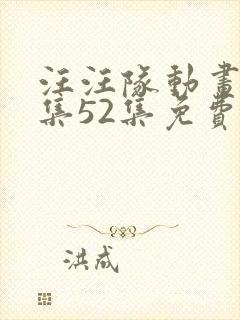 汪汪隊動畫
集52集免費
洪成